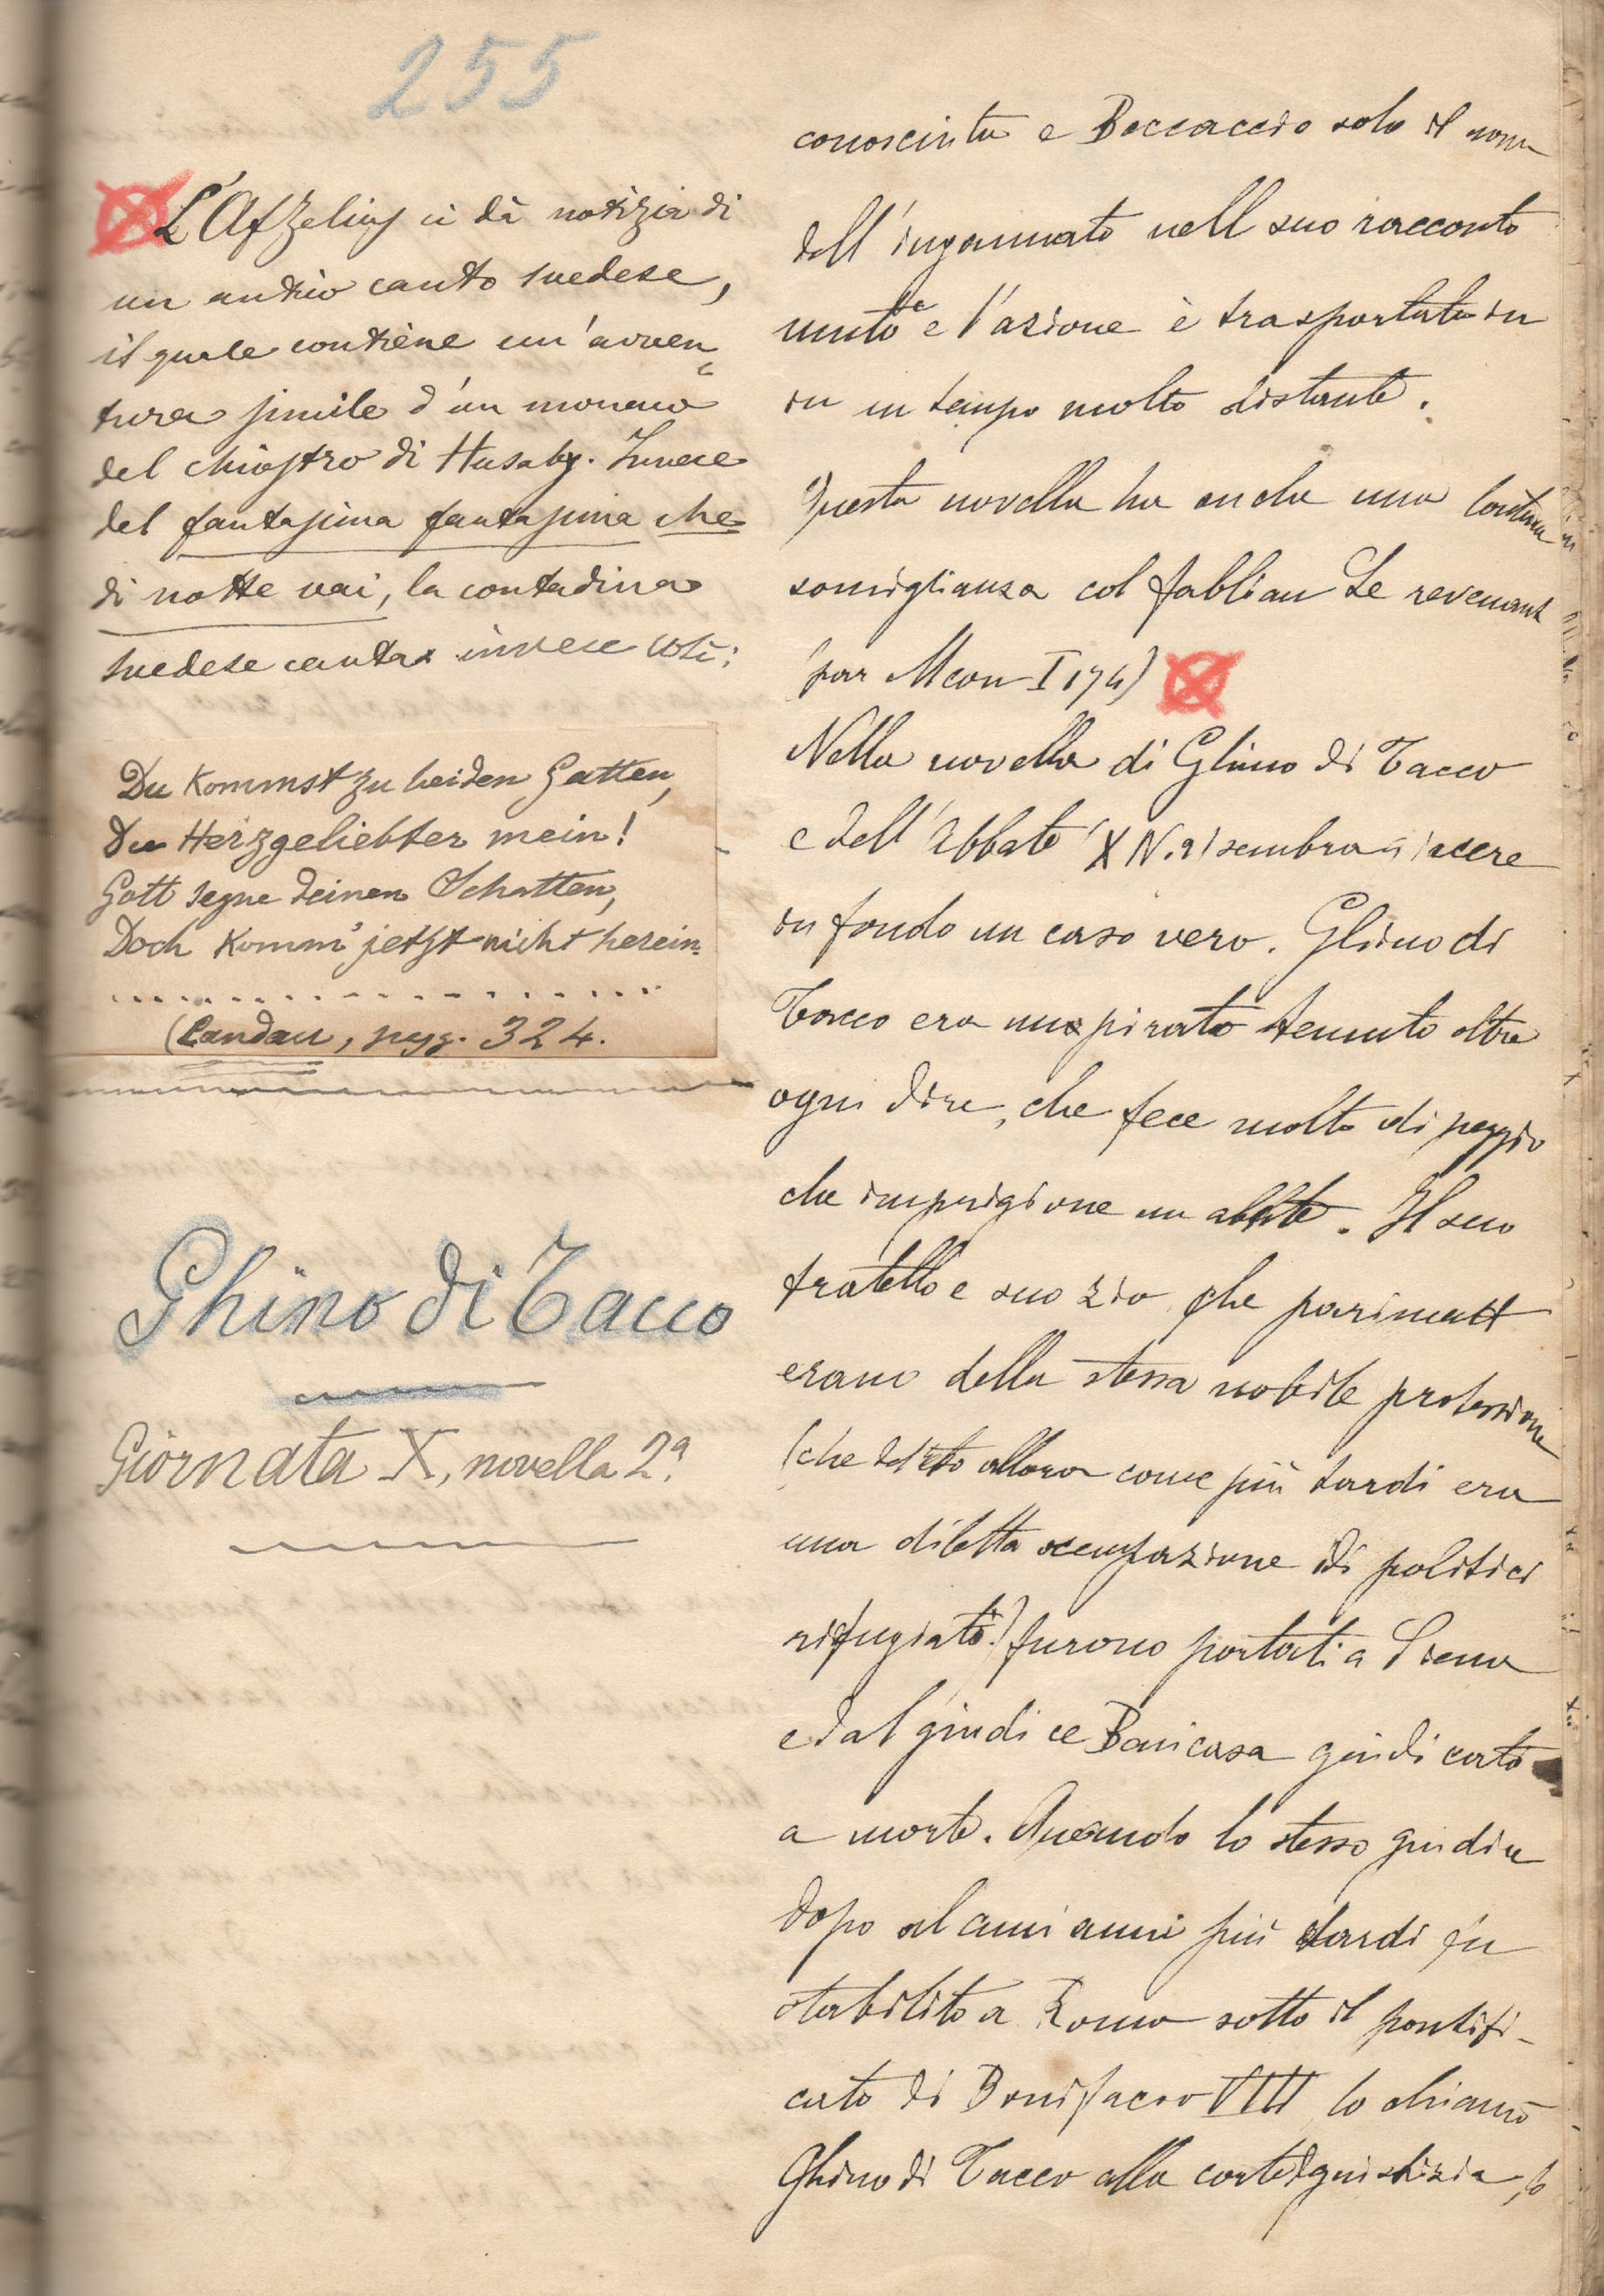 255
L'Afzelius ci dà notizia di
un antico canto svedese,
il quale contiene un'avven-
tura simile d'un monaco
del chiostro di Husaby. Invece
del fantasima fantasima che
di notte vai, la contadina
svedese canta invece così:
Du kommst zu beiden Gatten,
Du Herzgeliebter mein!
Gott segne deinen Schatten,
Doch komm' jetzt nicht herein.
(Landau, pagg. 324.
Ghino di Tacco
Giornata X, novella 2ª.
conosciuta e Boccaccio solo il nome
dell'ingannato nell suo racconto
muto e l'azione è trasportata in
in un tempo molto distante.
Questa novella ha anche una lontana
somiglianza col fabliau Le revenant
par Meon I 174)
Nella novella di Ghino di Tacco
e dell'Abbate (X N. 2) sembra giacere
in fondo un caso vero. Ghino di
Tacco era un pirato temuto oltre
ogni dire, che fece molto di peggio
che imprigione un abbate. Il suo
fratello e suo zio che pariment
erano della stessa nobile professione
(che allora come più tardi era
una diletta occupazione di politici
rifugiati.) furono portati a Siena
e dal giudice Benicasa giudicato
a morte. Quando lo stesso giudice
dopo alcuni anni più tardi fu
stabilito a Roma sotto il pontifi-
cato di Bonifacio VIII lo chiamò
Ghino di Tacco alla corte di giustizia, lo